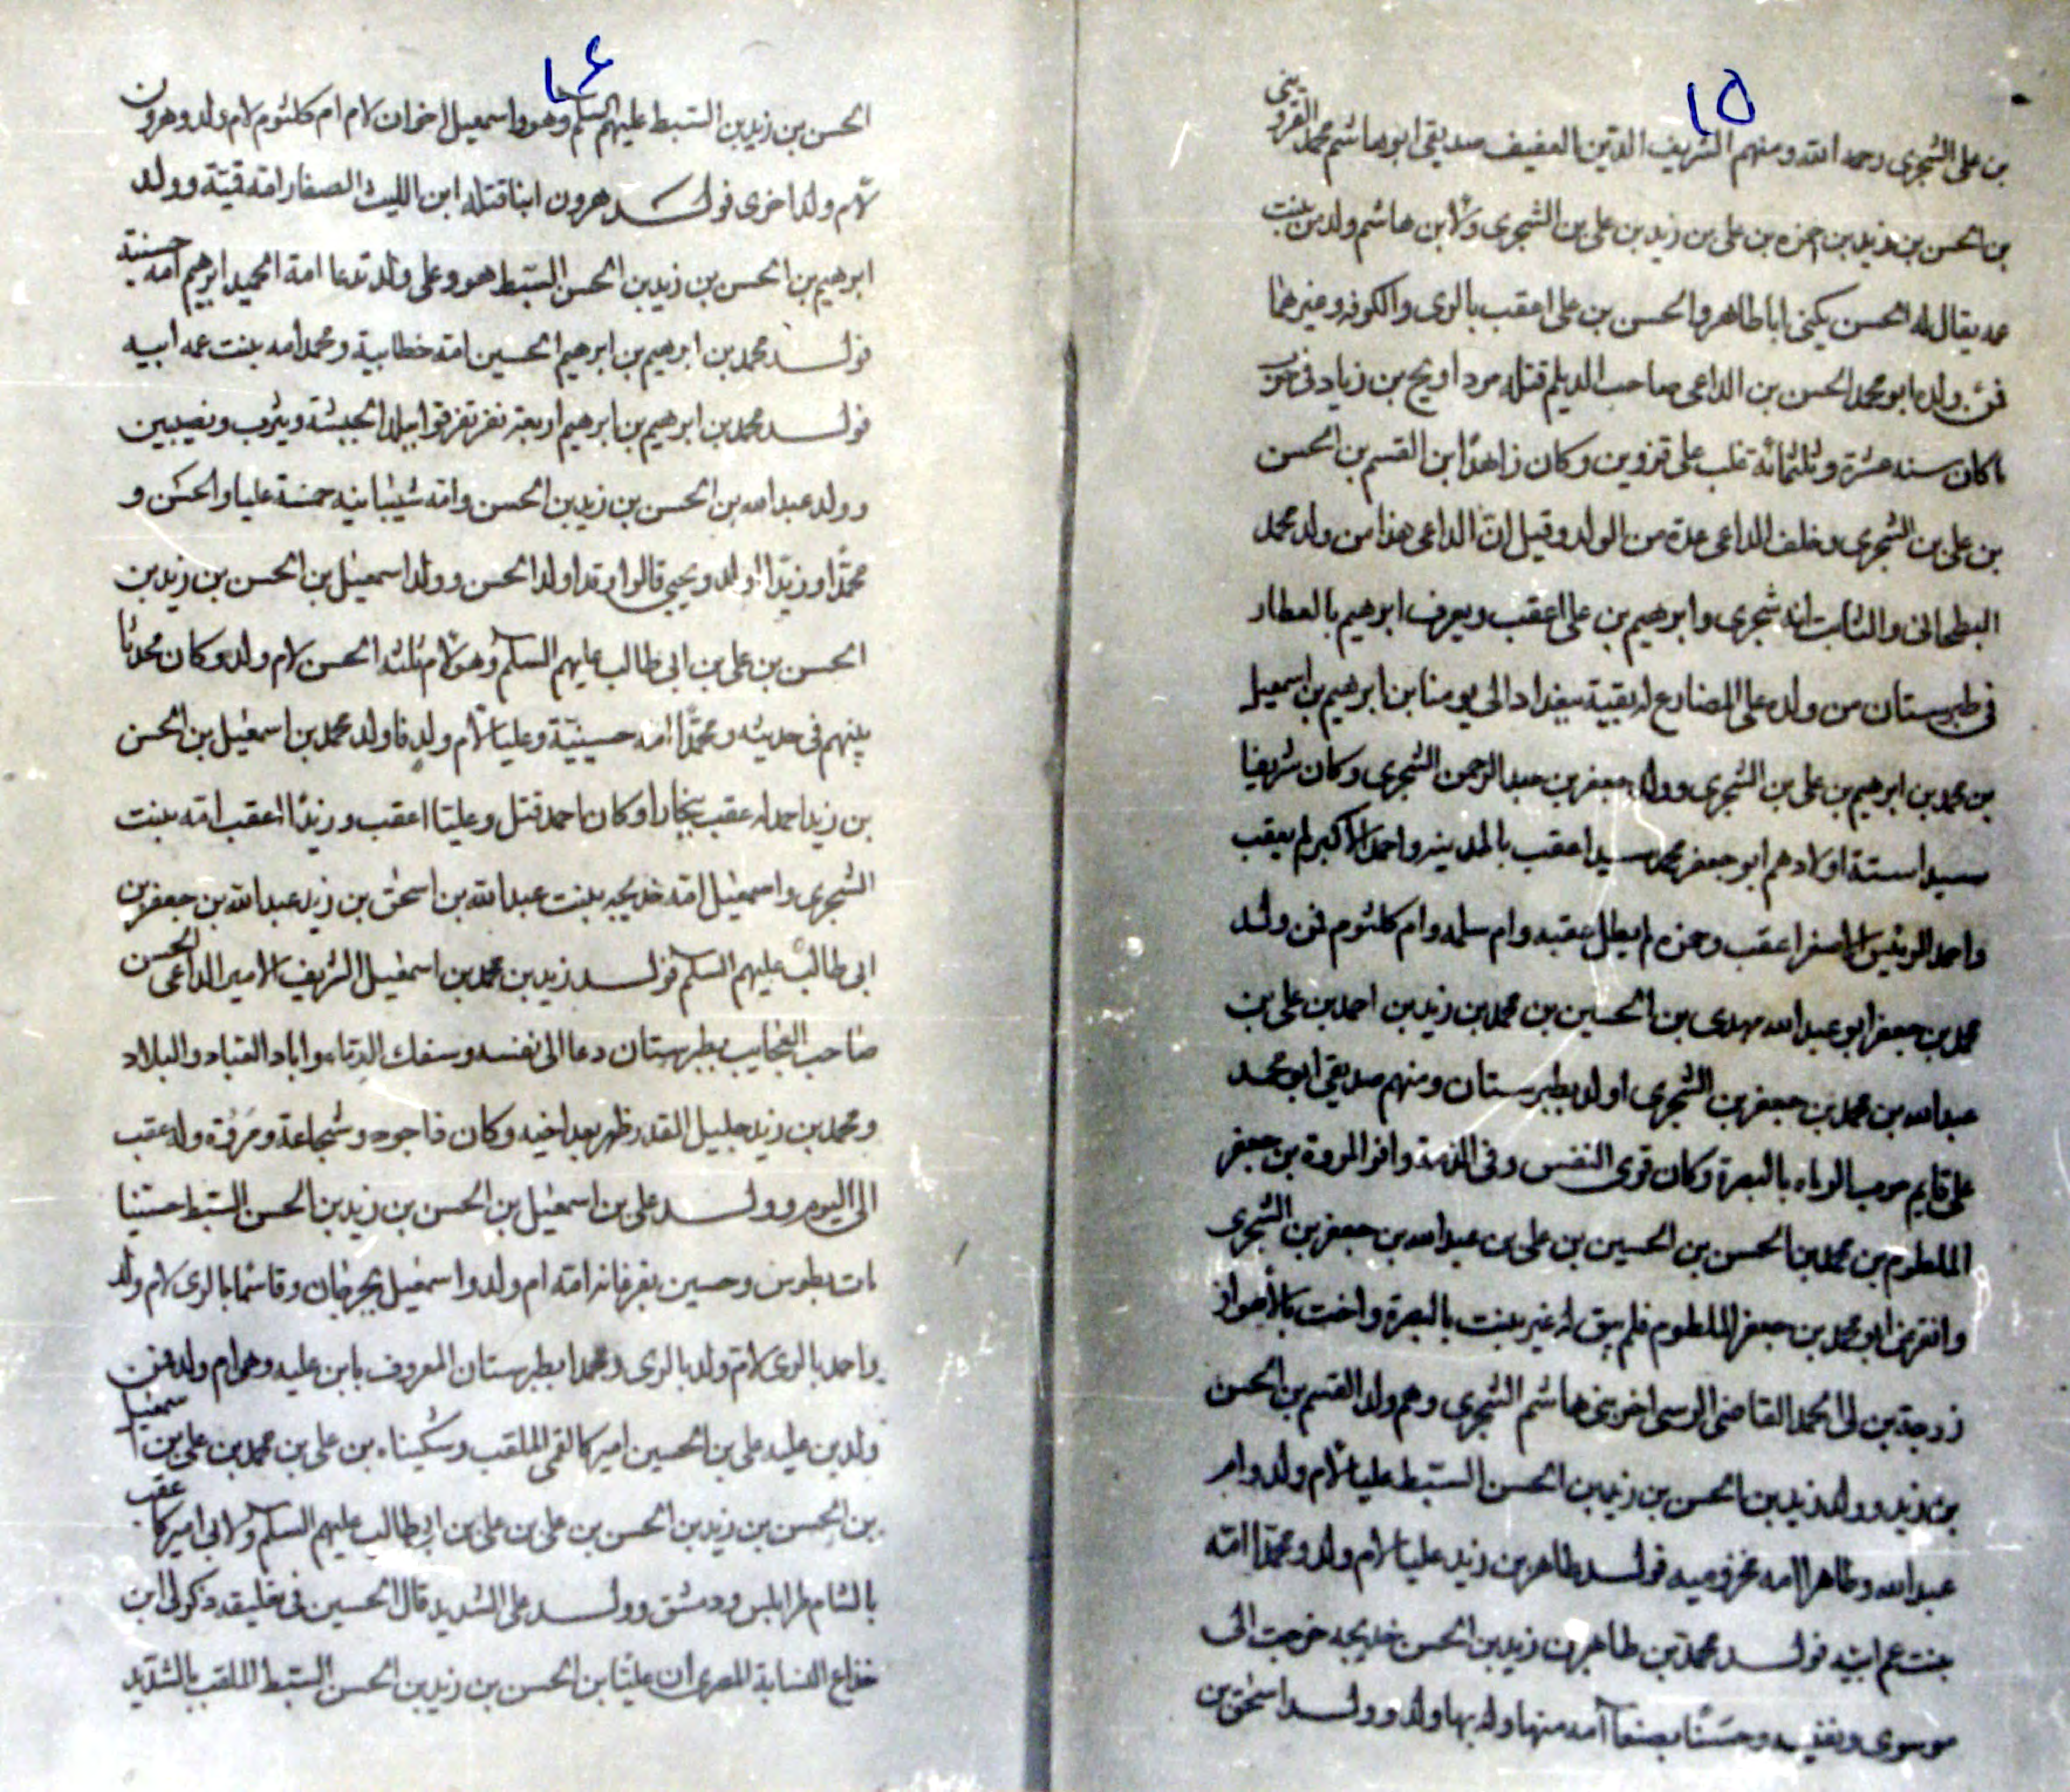 ١٥
بن علی الشجری رحمه الله ومنهم الشریف الدین العفیف صدیقی ابو هاشم محمد القزوینی
بن الحسن بن زید بن حمزه بن علی بن زید بن علی بن الشجری ولابن هاشم ولد من بنت
عمه یقال له الحسن یکنی ابا طاهر والحسن بن علی اعقب بالری والکوفه وغیرهما
فمن ولده ابو محمد الحسن بن الداعی صاحب الدیلم قتله مرداویج بن زیاد فی حرب
ماکان سنه عشرة وثلثمائة غلب علی قزوین وکان زاهدا ابن القسم بن الحسن
بن علی بن الشجری وخلف الداعی عدة من الولد وقیل ان الداعی هذا من ولد محمد
البطحانی والثابت انه شجری وابرهیم بن علی اعقب ویعرف ابرهیم بالعطار
فی طبرستان من ولده علی المضارع له بقیة ببغداد الی یومنا بن ابرهیم بن اسمعیل
بن محمد بن ابرهیم بن علی بن الشجری وولد جعفر بن عبد الرحمن الشجری وکان شریفا
سیدا ستة اولادهم ابو جعفر محمد سیدا عقب بالمدینه واحمد الاکبر لم یعقب
واحمد الرئیس الاصغر اعقب وحمزه لم یطل عقبه وام سلمه وام کلثوم فمن ولد
محمد بن جعفر ابو عبد الله مهدی بن الحسین بن محمد بن زید بن احمد بن علی بن
عبد الله بن محمد بن جعفر بن الشجری اولد بطبرستان ومنهم صدیقی ابو محمد
علی قایم بالبصرة وکان قوی النفس وفی الذمة وافر المروة بن جعفر
الملطوم بن محمد بن الحسن بن الحسین بن علی بن عبد الله بن جعفر بن الشجری
وانقرض ابو محمد بن جعفر الملطوم فلم یبق له غیر بنت بالبصرة واخت بالاهواز
زوجة بن ابی محمد القاضی الرسی اخو بنی هاشم الشجری وهم ولد القسم بن الحسن
بن زید وولد زید بن الحسن بن زید بن الحسن السبط علیا لام ولد وام
عبد الله وطاهرا امه مخزومیه فولد طاهر بن زید علیا لام ولد ومحمدا امه
بنت عم ابیه فولد محمد بن طاهر بن زید بن الحسن خدیجه خرجت الی
موسوی ونفیسه وحسنا بصنعا امه منها وله بها ولد وولد اسحق بن
١٦
الحسن بن زید بن السبط علیهم السلم وهو واسمعیل اخوان لام ام کلثوم لام ولد وهرون
لام ولد اخری فولد هرون ابنا قتله ابن اللیث الصفار امه قمیة وولد
ابرهیم بن الحسن بن زید بن الحسن السبط هو وعلی ولد تدعا امة الحمید ابرهیم امه حسنیة
فولد محمد بن ابرهیم بن ابرهیم الحسین امه خطابیة ومحمد امه بنت عمه ابیه
فولد محمد بن ابرهیم بن ابرهیم اربعة نفر تفرقوا ببلد الحبشة ویثرب ونصیبین
وولد عبد الله بن الحسن بن زید بن الحسن وامه شیبانیه خمسة علیا والحسن و
محمدا وزیدا اولد ویحیی قالوا وقد اولد الحسن وولد اسمعیل بن الحسن بن زید بن
الحسن بن علی بن ابی طالب علیهم السلم وهو لام ثلثه الحسن لام ولد وکان محدثا
بینهم فی حدیثه ومحمدا امه حسینیة وعلیا لام ولد فاولد محمد بن اسمعیل بن الحسن
بن زید احمد له عقب ببخارا وکان احمد قتل وعلیا اعقب وزیدا اعقب امه بنت
الشجری واسمعیل امه خدیجه بنت عبد الله بن اسحق بن زید عبد الله بن جعفر بن
ابی طالب علیهم السلم فولد زید بن محمد بن اسمعیل الشریف الامیر الداعی الحسن
صاحب العجایب بطبرستان دعا الی نفسه وسفک الدماء واباد العباد والبلاد
ومحمد بن زید جلیل القدر ظهر بعد اخیه وکان ذا جود وشجاعة ومروة وله عقب
الی الیوم وولد علی بن اسمعیل بن الحسن بن زید بن الحسن السبط حسنا
مات بطوس وحسین بفرغانه امه ام ولد واسمعیل بجرجان وقاسما بالری لام ولد
واحمد بالری لام ولد بالری ومحمدا بطبرستان المعروف بابن علیه وهی ام ولد فمن
ولد بن علیه علی بن الحسین امیرکا القمی الملقب وسکیناه بن علی بن محمد بن علی بن اسمعیل
بن الحسن بن زید بن الحسن بن علی بن علی بن ابی طالب علیهم السلم ولابی امیرکا عقب
بالشام طرابلس ودمشق وولد علی الشدید قال الحسین فی تعلیقه ذکر لی ابن
خداع النسابة المصری ان علیا بن الحسن بن زید بن الحسن السبط الملقب بالشدید